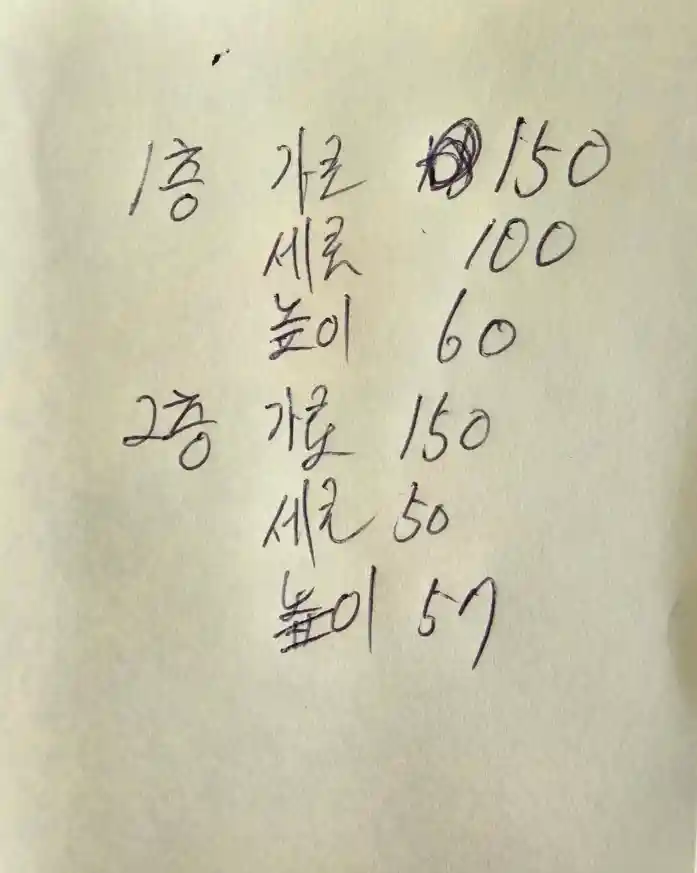 1층 가로 150
세로 100
높이 60
2층 가로 150
세로 50
높이 57